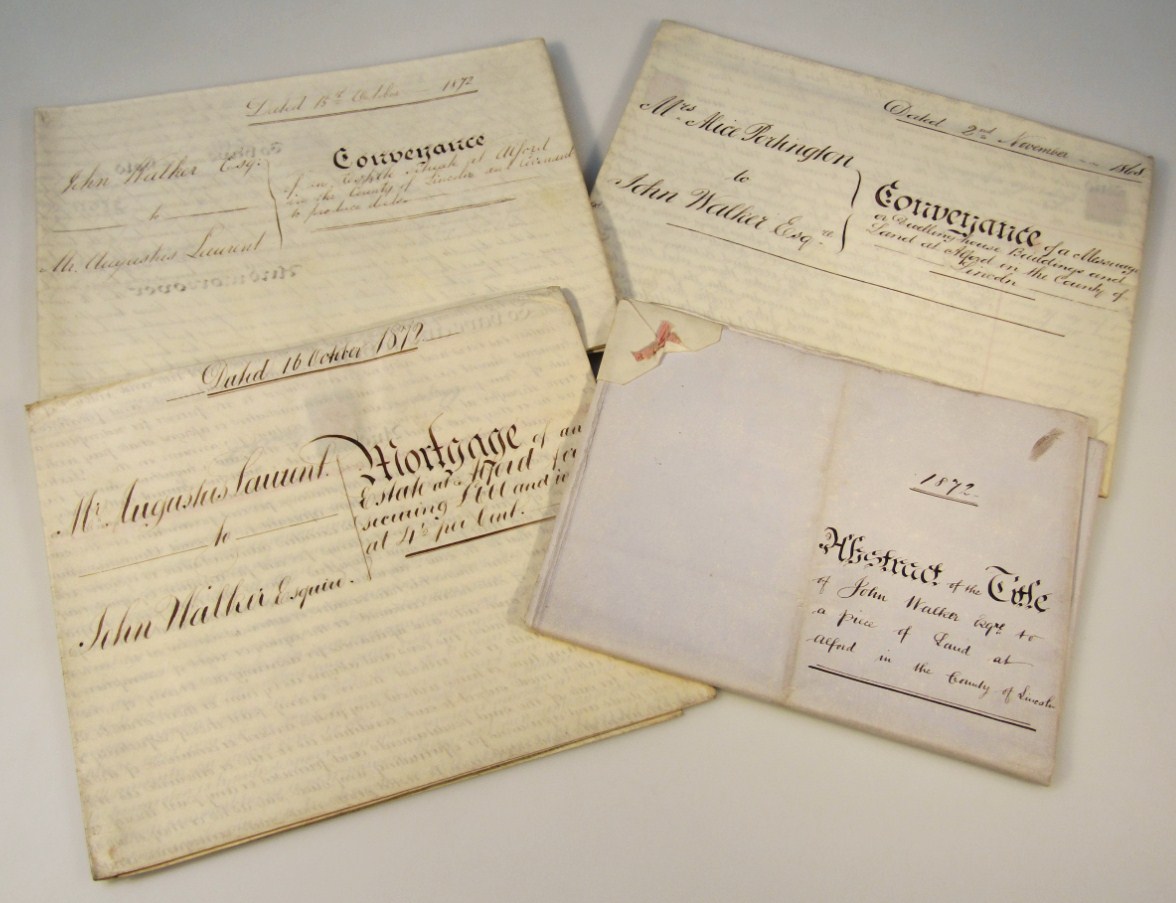 Dated 15th October 1872
John Walker Esq.
to
Mr. Augustus Laurent
Conveyance
of an Estate situate at Alford
in the County of Lincoln and Covenant
to produce deeds
Dated 2nd November 1868
Mrs. Alice Portington
to
John Walker Esq.re
Conveyance of a Messuage
or Dwellinghouse Buildings and
Land at Alford in the County of
Lincoln
Dated 16 October 1872
Mr Augustus Laurent
to
John Walker Esquire.
Mortgage of an
Estate at Alford for
securing and
at per Cent.
1872
Abstract of the Title
of John Walker Esqre to
a piece of Land at
Alford in the County of Lincoln